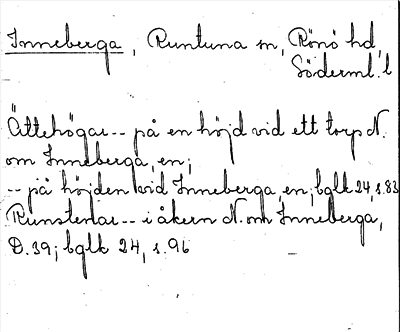 Inneberga, Runtuna sn, Rönö hd,
Söderml. l
Ättehögar -- på en höjd vid ett torp N.
om Inneberga, en;
-- på höjden vid Inneberga, en; bglk 24, s. 83
Runstenar -- i åkern N. om Inneberga,
D. 39; bglk 24, s. 96